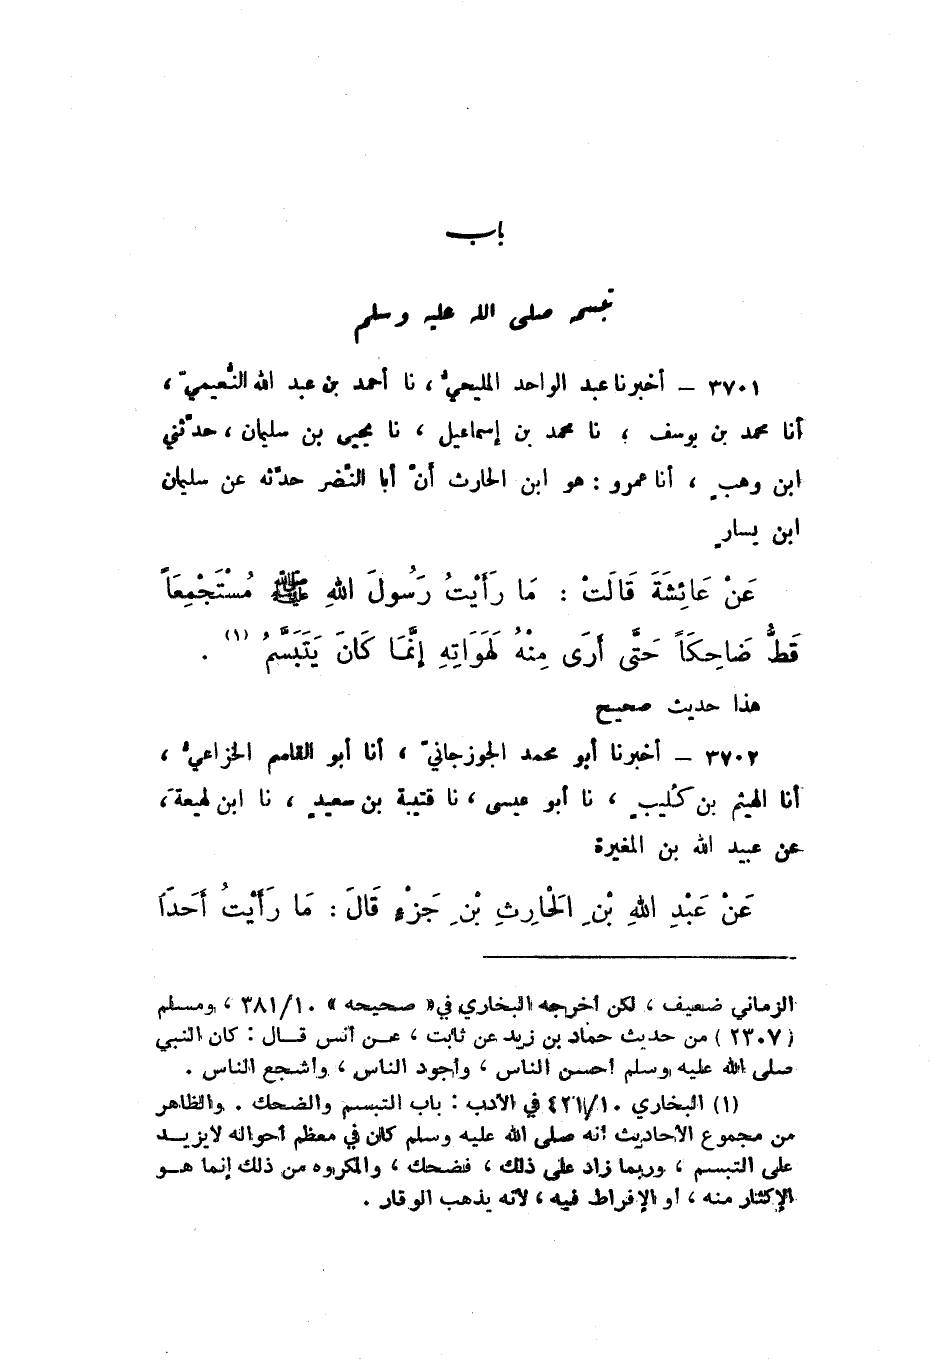 باب
تبسمه صلى الله عليه وسلم
٣٧٠١ – أخبرنا عبد الواحد المليحيُّ ، نا أحمد بن عبد الله النُّعيميّ ،
أنا محمد بن يوسف ، نا محمد بن إسماعيل ، نا يحيى بن سليمان ، حدّثني
ابن وهبٍ ، أنا عمرو : هو ابن الحارث أنّ أبا النَّضر حدّثه عن سليمان
ابن يسارٍ
عَنْ عَائِشَةَ قَالَتْ : مَا رَأَيْتُ رَسُولَ اللهِ ﷺ مُسْتَجْمِعَاً
قَطُّ ضَاحِكَاً حَتَّى أَرَى مِنْهُ لَهَوَاتِهِ إِنَّمَا كَانَ يَتَبَسَّمُ (١) .
هذا حديث صحيح
٣٧٠٢ – أخبرنا أبو محمد الجوزجانيّ ، أنا أبو القاسم الخزاعيُّ ،
أنا الهيثم بن كُليبٍ ، نا أبو عيسى ، نا قتيبة بن سعيدٍ ، نا ابن لهيعةَ ،
عن عبيد الله بن المغيرة
عَنْ عَبْدِ اللهِ بْنِ الْحَارِثِ بْنِ جَزْءٍ قَالَ : مَا رَأَيْتُ أَحَدَاً
الزماني ضعيف ، لكن أخرجه البخاري في « صحيحه » ٣٨١/١٠ ، ومسلم
(٢٣٠٧) من حديث حماد بن زيد عن ثابت ، عن أنس قال : كان النبي
صلى الله عليه وسلم أحسن الناس ، وأجود الناس ، وأشجع الناس .
(١) البخاري ٤٢١/١٠ في الأدب : باب التبسم والضحك . والظاهر
من مجموع الأحاديث أنه صلى الله عليه وسلم كان في معظم أحواله لايزيد
على التبسم ، وربما زاد على ذلك ، فضحك ، والمكروه من ذلك إنما هو
الإكثار منه ، أو الإفراط فيه ، لأنه يذهب الوقار .